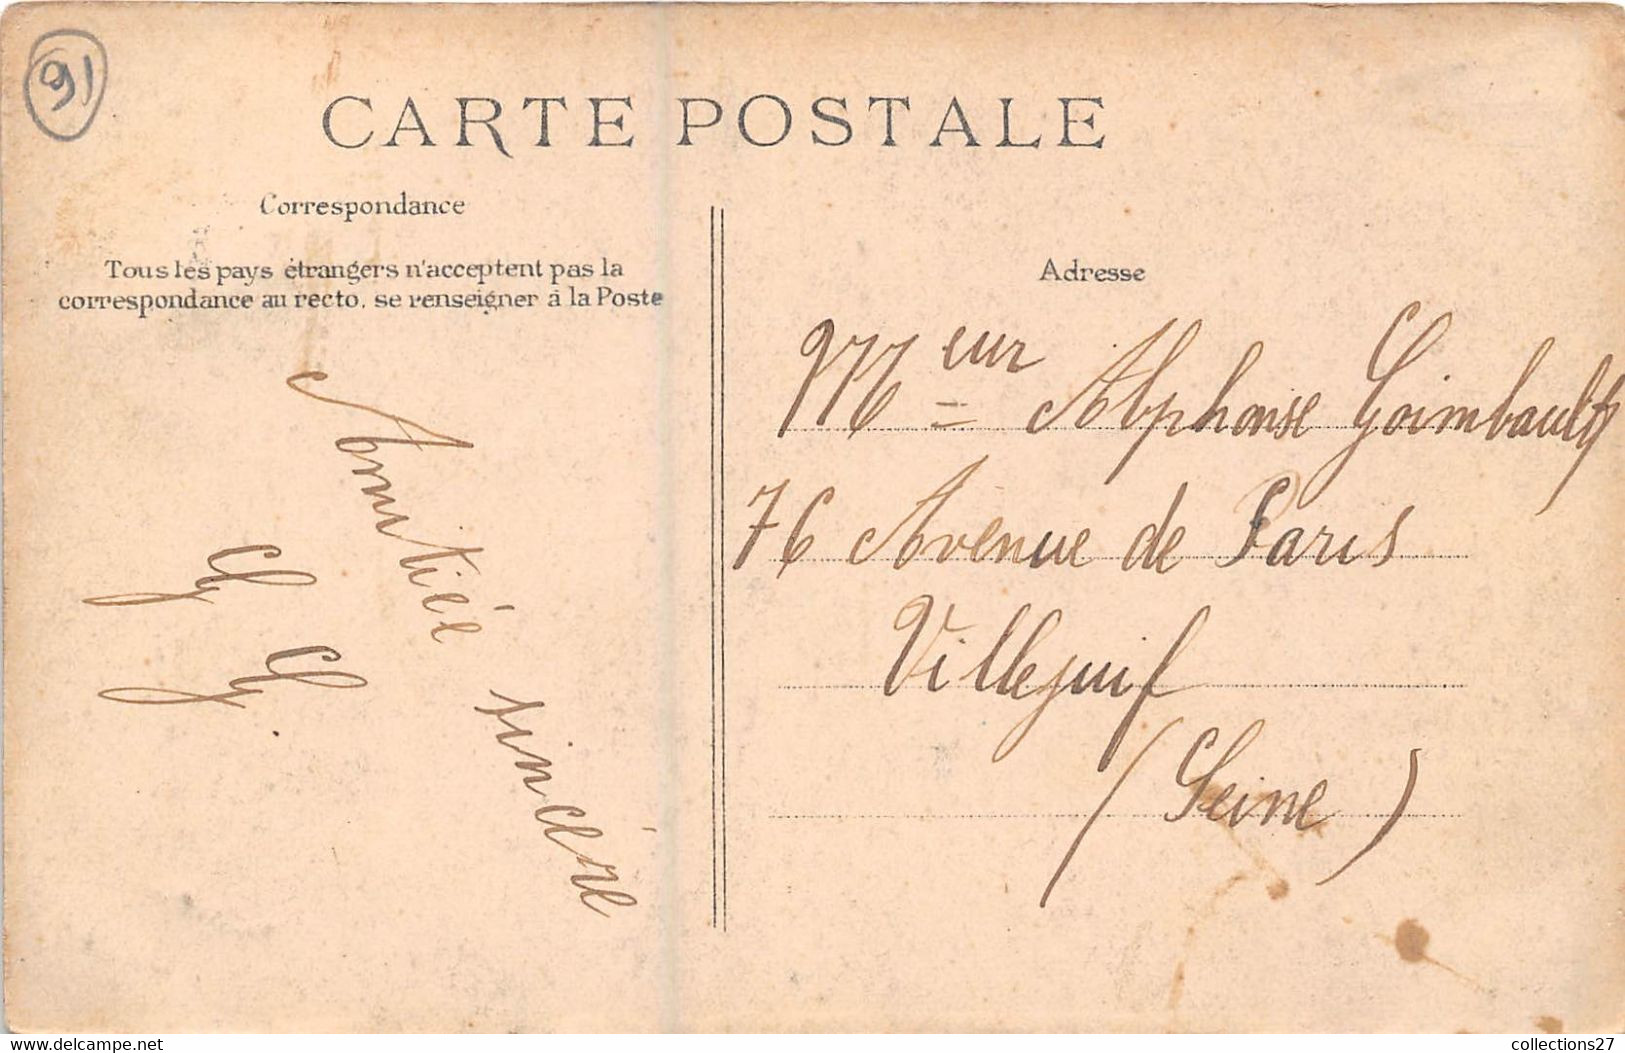 91
CARTE POSTALE
Correspondance
Tous les pays étrangers n'acceptent pas la
correspondance au recto, se renseigner à la Poste
Amitiée
sincère
Adresse
Meur Alphonse Goimbault
76 Avenue de Paris
Villejuif
(Seine)
delcampe.net
collections27